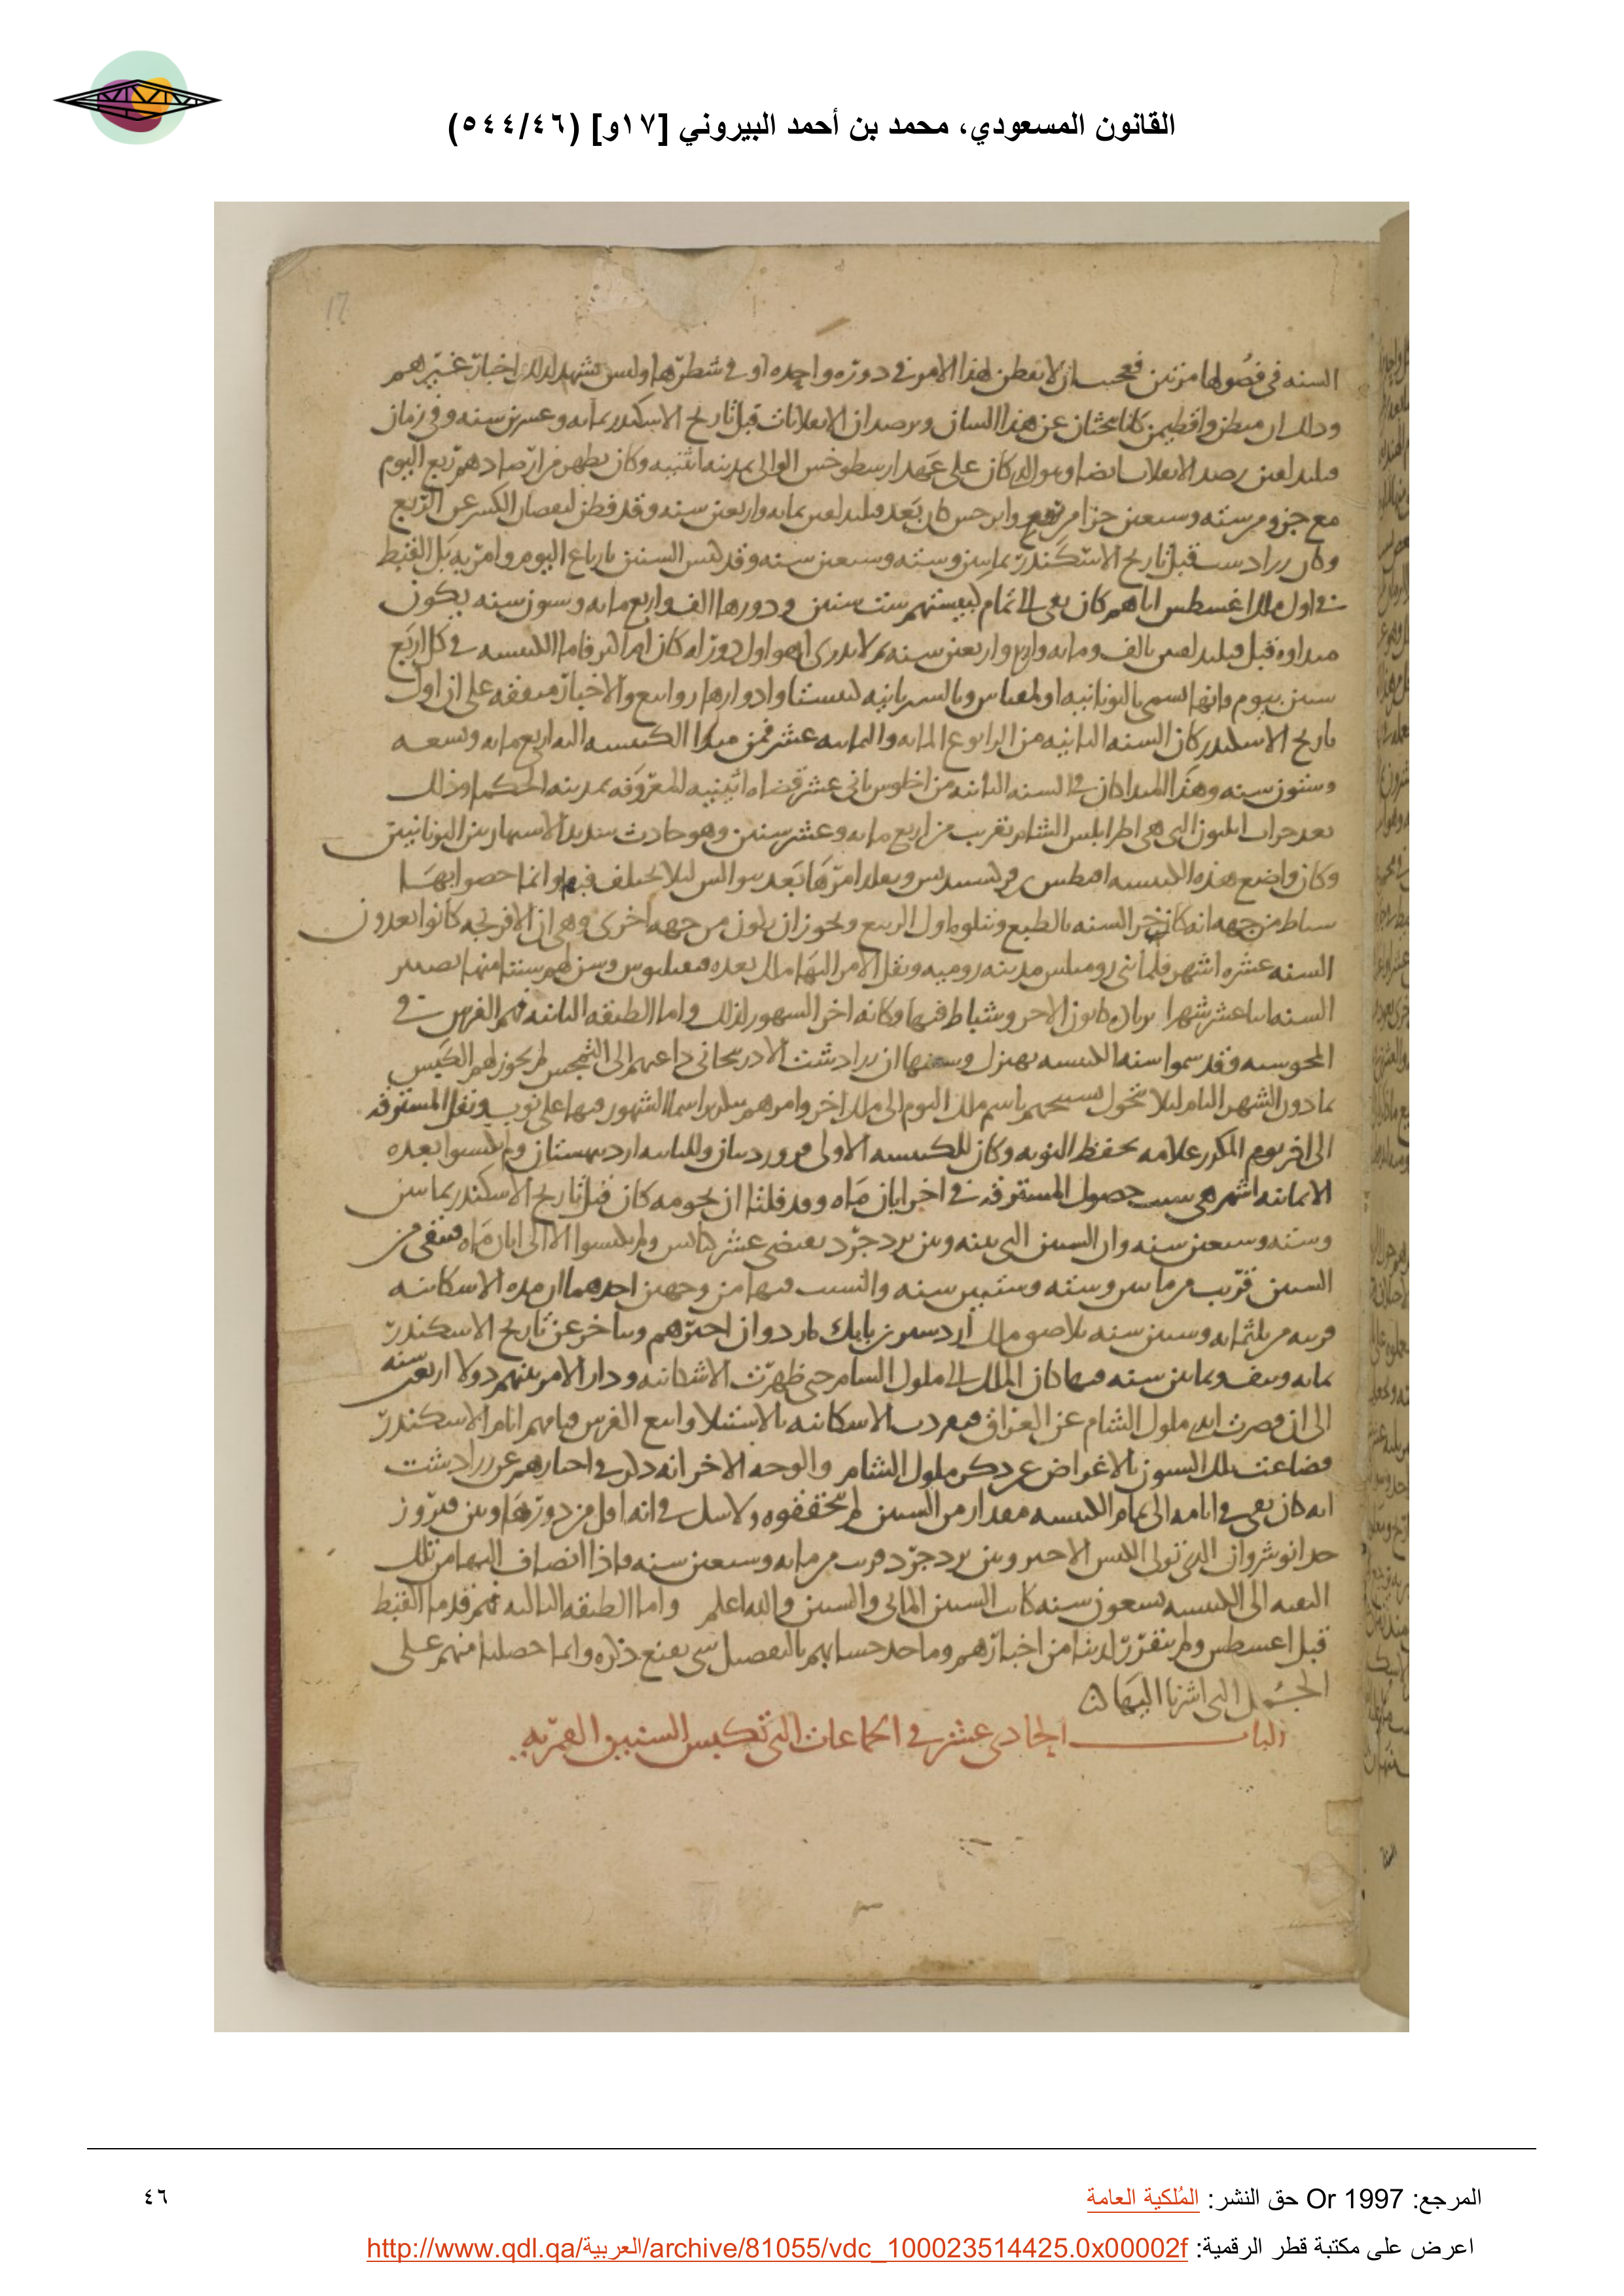 القانون المسعودي، محمد بن أحمد البيروني [١٧و] (٥٤٤/٤٦)
17
السنه في فصولها مرتين فعجب ان لا يفطن لهذا الامر في دوره واحده او في شطرها وليس يشهد لذلك اخبار غيرهم
وذلك ان ميطن واقطيمن كانا يبحثان عن هذا الشان ويرصدان الانقلابات قبل تاريخ الاسكندر بمايه وعشرين سنه وفي زمان
رصد الانقلاب ايضا وهو الذي كان على عهد ارسطرخس الوالى بمدينه اثنيه وكان يظهر من ارصادهم ربع اليوم
مع جزو من سته وسبعين جزا من يوم وابرخس كان بعد بمايه واربعين سنه وقد فطن لنقصان الكسر عن الربع
وكان زرادشت قبل تاريخ الاسكندر بمايتين وسته وسبعين سنه وقد كبس السنين بارباع اليوم وامر به بل القبط
في اول ملك اغسطس اياهم كان بقى الى تمام كبيستهم ست سنين ودورها الف واربع مايه وستون سنه يكون
مبداوه قبل بالف ومايه واربع واربعين سنه ثم لا يدرى اهو اول دور له كان ام اكثر فاما الكبيسه في كل اربع
سنين بيوم وانها تسمى باليونانيه وبالسريانيه كبيشتا وادوارها روابيع والاخبار متفقه على ان اول
تاريخ الاسكندر كان السنه الثانيه من الرابوع المايه والثمانيه عشر فمن مبدا الكبيسه اليه اربع مايه وتسعه
وستون سنه وهذا المبدا كان في السنه الثانيه من ثانى عشر قضاه اثينيه المعروفه بمدينه الحكما وذلك
بعد خراب ايليون التى هى اطرابلس الشام بقريب من اربع مايه وعشر سنين وهو حادث شديد الاشتهار بين اليونانيين
وكان واضع هذه الكبيسه ليلا يختلف فيها وانما خصوا بها
شباط من جهه انه كان اخر السنه بالطبع ويتلوه اول الربيع ويجوز ان يكون من جهه اخرى وهى ان الافرنجه كانوا يعدون
السنه عشره اشهر فلما بنى روملس مدينه روميه ونقل الامر اليها ملك بعده وسن لهم سنتا منها تصيير
السنه اثنا عشر شهرا بزياده كانون الاخر وشباط فيها وكانه اخر الشهور لذلك واما الطبقه الثانيه فهم الفرس في
المجوسيه وقد سموا سنه الكبيسه بهيزك وسببها ان زرادشت الاذربيجانى داعيهم الى التمجس لم يجوز لهم الكبس
بما دون الشهر التام ليلا تتحول باسم ملك اليوم الى ملك اخر وامرهم بتكرير اسما الشهور فيها على نوب ونقل المسترقه
الى اخر يوم المكرر علامه تحفظ النوبه وكان للكبيسه الاولى فروردين وللثانيه ارديبهشت ولم يكبسوا بعده
الا ثمانيه اشهر هى سبب حصول المسترقه في اخر ابان ماه وقد قلنا ان نجومه كان قبل تاريخ الاسكندر بمايتين
وسته وسبعين سنه وان السنين التى بينه وبين يزدجرد يقتضى عشر كبايس ولم يكبسوا الا الى ابان ماه فبقى من
السنين قريب من مايتين وسته وستين سنه والسبب فيها من وجهين احدهما ان مده الاشكانيه
قريبه من ثلثمايه وستين سنه ملك اردشير بن بابك اردوان اخرهم ويتاخر عن تاريخ الاسكندر
بمايه ونيف وثمانين سنه فيها كان الملك الى ملوك الشام حتى ظهرت الاشكانيه ودار الامر بينهم دولا اربعين سنه
الى ان قصرت ايدى ملوك الشام عن العراق فتفردت الاشكانيه بالاستيلا واتبع الفرس قيامهم ايام الاسكندر
فضاعت تلك السنون بالاغراض عن ذكر ملوك الشام والوجه الاخر انه ذكر في اخبارهم عن زرادشت
انه كان بقى في ايامه الى تمام الكبيسه مقدار من السنين لم يحققوه ولا شك في انه اقل من دورها وبين فيروز
جد انوشروان الذى تولى الكبس الاخير وبين يزدجرد قريب من مايه وسبعين سنه فاذا انضاف اليها من تلك
البقيه الى الكبيسه تسعون سنه كانت السنين المايتى والستين والله اعلم واما الطبقه الثالثه فهم قدما القبط
قبل اغسطس ولم يتقرر لدينا من اخبارهم وماخد حسابهم بالتفصيل شى يقنع ذكره وانما حصلنا منهم على
الجمل التى اشرنا اليها
الباب الحادى عشر في الجماعات التى تكبس السنين القمريه
المرجع: Or 1997 حق النشر: المُلكية العامة
٤٦
اعرض على مكتبة قطر الرقمية: http://www.qdl.qa/العربية/archive/81055/vdc_100023514425.0x00002f